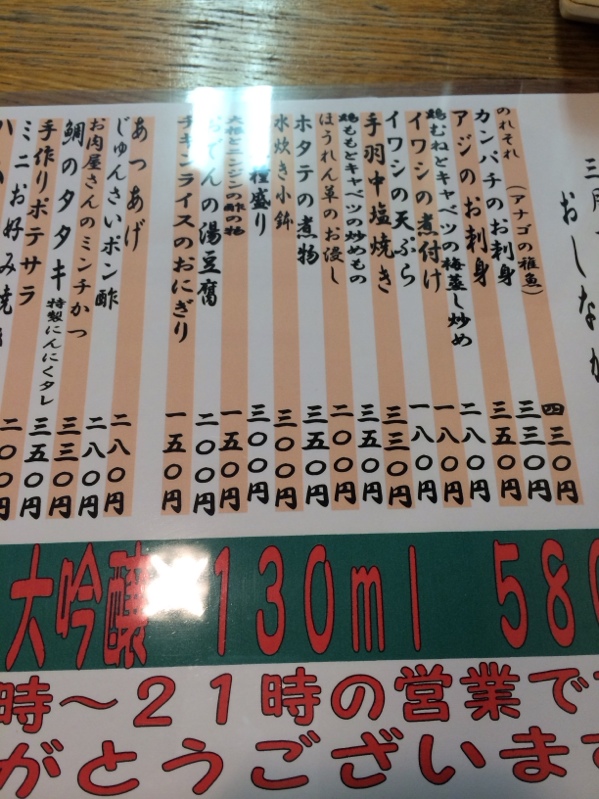 三月
おしなが
のれそれ（アナゴの稚魚） 四三〇円
カンパチのお刺身 三三〇円
アジのお刺身 三五〇円
鶏むねとキャベツの梅蒸し炒め 二八〇円
イワシの煮付け 一八〇円
イワシの天ぷら 一八〇円
手羽中塩焼き 三三〇円
鶏ももとキャベツの炒めもの 三五〇円
ほうれん草のお浸し 二〇〇円
ホタテの煮物 三五〇円
水炊き小鉢 三〇〇円
種盛り 三〇〇円
大根とニンジンの酢の物 一五〇円
おでんの湯豆腐 二〇〇円
チキンライスのおにぎり 一五〇円
あつあげ 二八〇円
じゅんさいポン酢 二八〇円
お肉屋さんのミンチかつ 三三〇円
鯛のタタキ 特製にんにくタレ 三五〇円
手作りポテサラ 二〇〇円
ミニお好み焼
大吟醸 130ml 580
時～21時の営業で
がとうございます